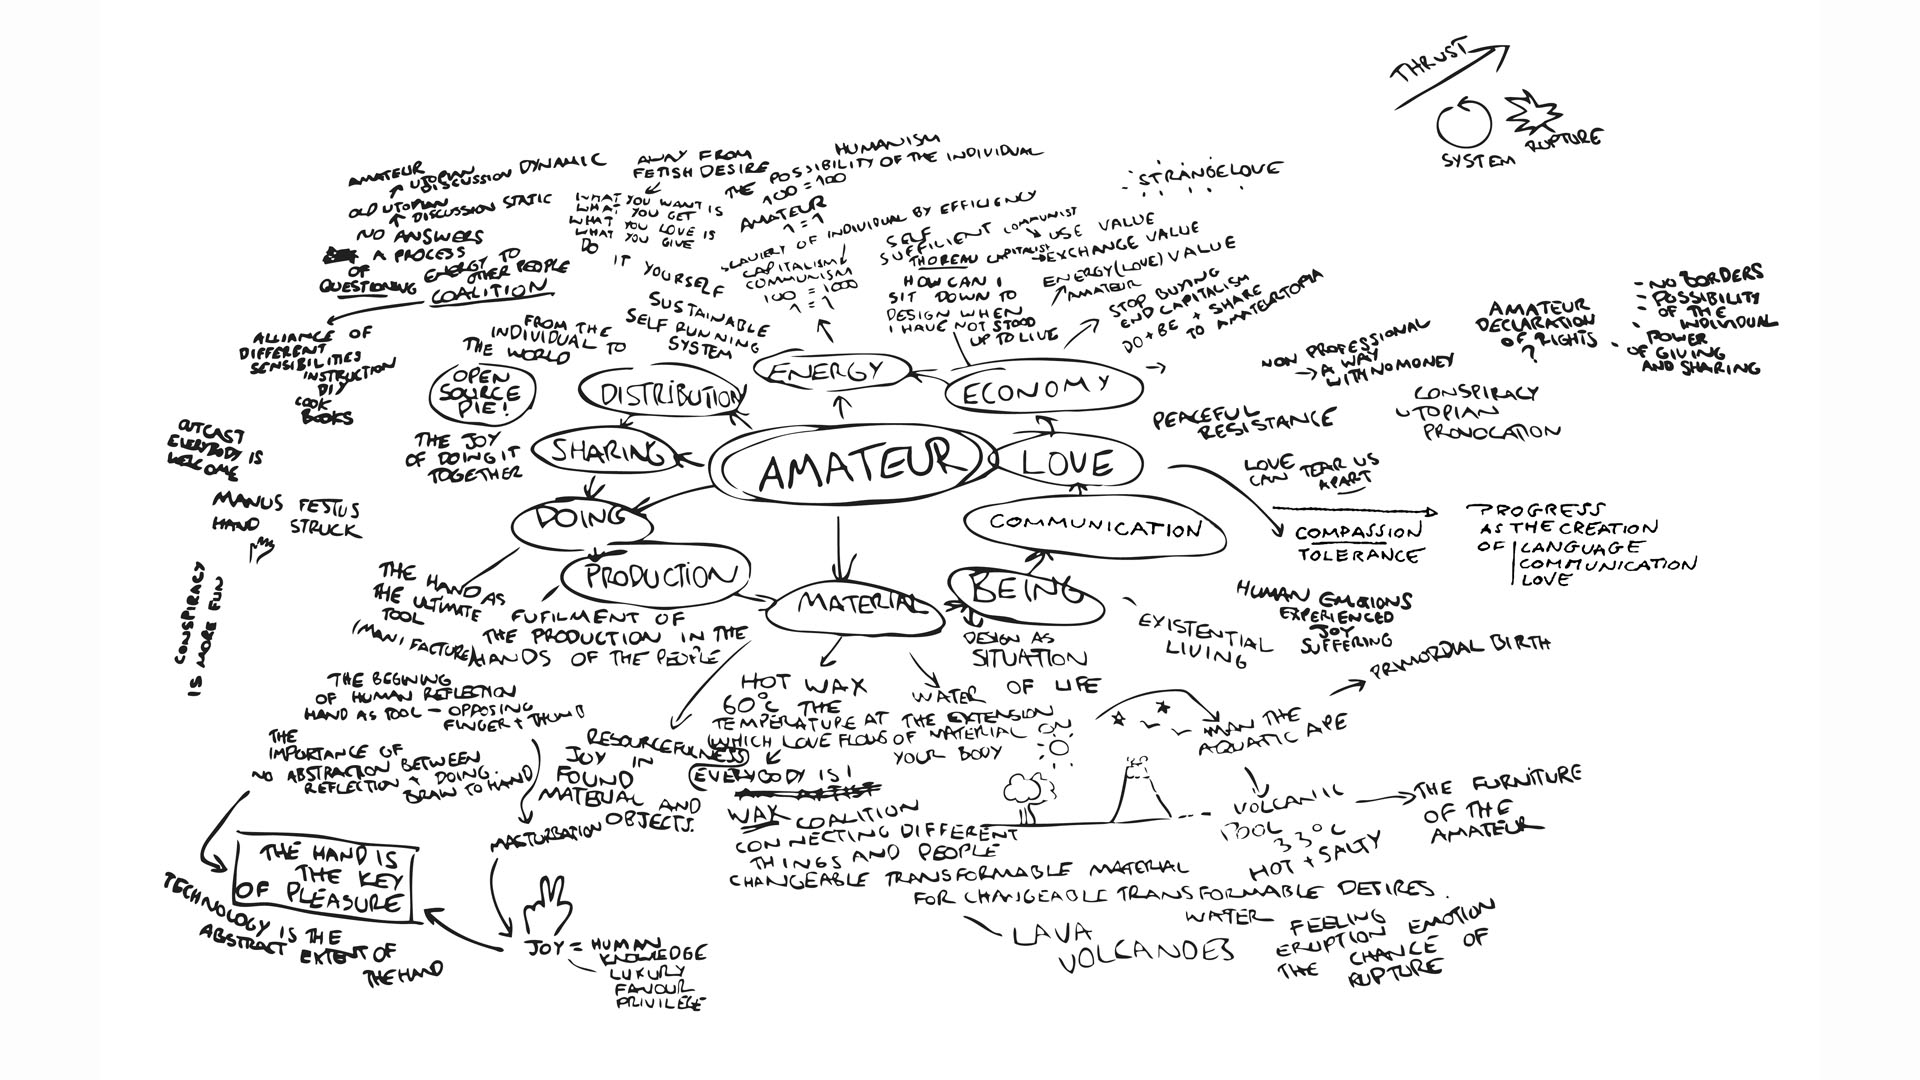 THRUST
SYSTEM
RUPTURE
AMATEUR
UTOPIAN
DISCUSSION DYNAMIC
OLD UTOPIAN
DISCUSSION STATIC
NO ANSWERS
A PROCESS
OF
QUESTIONING
ENERGY TO
OTHER PEOPLE
COALITION
ALLIANCE OF
DIFFERENT
SENSIBILITIES
INSTRUCTION
DIY
COOK
BOOKS
AWAY FROM
FETISH DESIRE
WHAT YOU WANT IS
WHAT YOU GET
WHAT YOU LOVE IS
WHAT YOU GIVE
DO IT YOURSELF
HUMANISM
THE POSSIBILITY OF THE INDIVIDUAL
100 = 100
AMATEUR
1 = 1
SLAVERY OF INDIVIDUAL BY EFFICIENCY
CAPITALISM
COMMUNISM
100 = 1000
1 = 1
SELF
SUFFICIENT
THOREAU
COMMUNIST
USE VALUE
CAPITALIST
EXCHANGE VALUE
ENERGY (LOVE) VALUE
AMATEUR
HOW CAN I
SIT DOWN TO
DESIGN WHEN
I HAVE NOT STOOD
UP TO LIVE
STRANGELOVE
STOP BUYING
END CAPITALISM
DO + BE + SHARE
TO AMATEURTOPIA
SUSTAINABLE
SELF RUNNING
SYSTEM
FROM THE
INDIVIDUAL TO
THE WORLD
OPEN
SOURCE
PIE!
DISTRIBUTION
ENERGY
ECONOMY
SHARING
AMATEUR
LOVE
DOING
COMMUNICATION
PRODUCTION
MATERIAL
BEING
THE JOY
OF DOING IT
TOGETHER
OUTCAST
EVERYBODY IS
WELCOME
MANUS FESTUS
HAND STRUCK
CONSPIRACY
IS MORE FUN
NON PROFESSIONAL
A WAY
WITH NO MONEY
PEACEFUL
RESISTANCE
AMATEUR
DECLARATION
OF RIGHTS
?
- NO BORDERS
- POSSIBILITY
- OF THE
INDIVIDUAL
POWER
OF GIVING
AND SHARING
CONSPIRACY
UTOPIAN
PROVOCATION
LOVE
CAN TEAR US
APART
COMPASSION
TOLERANCE
PROGRESS
AS THE CREATION
OF LANGUAGE
COMMUNICATION
LOVE
HUMAN EMOTIONS
EXPERIENCED
JOY
SUFFERING
EXISTENTIAL
LIVING
DESIGN AS
SITUATION
PRIMORDIAL BIRTH
THE HAND AS
THE ULTIMATE
TOOL
(MANIFACTURE)
FUFILMENT OF
THE PRODUCTION IN THE
HANDS OF THE PEOPLE
THE BEGINING
OF HUMAN REFLECTION
HAND AS TOOL - OPPOSING
FINGER + THUMB
THE
IMPORTANCE OF
NO ABSTRACTION BETWEEN
REFLECTION + DOING.
BRAIN TO HAND
THE HAND IS
THE KEY
OF PLEASURE
TECHNOLOGY IS THE
ABSTRACT EXTENT OF
THE HAND
MASTURBATION
JOY = HUMAN
KNOWLEDGE
LUXURY
FAVOUR
PRIVILEGE
RESOURCEFULNESS
JOY IN
FOUND
MATERIAL AND
OBJECTS.
HOT WAX
60°C THE
TEMPERATURE AT
WHICH LOVE FLOWS
EVERYBODY IS!
WAX COALITION
CONNECTING DIFFERENT
THINGS AND PEOPLE
CHANGEABLE TRANSFORMABLE MATERIAL
FOR CHANGEABLE TRANSFORMABLE DESIRES.
WATER OF LIFE
THE EXTENSION
OF MATERIAL ON
YOUR BODY
MAN THE
AQUATIC APE
VOLCANIC
POOL
33°C
HOT + SALTY
THE FURNITURE
OF THE
AMATEUR
LAVA
VOLCANOES
WATER
FEELING
ERUPTION EMOTION
THE CHANCE OF
RUPTURE